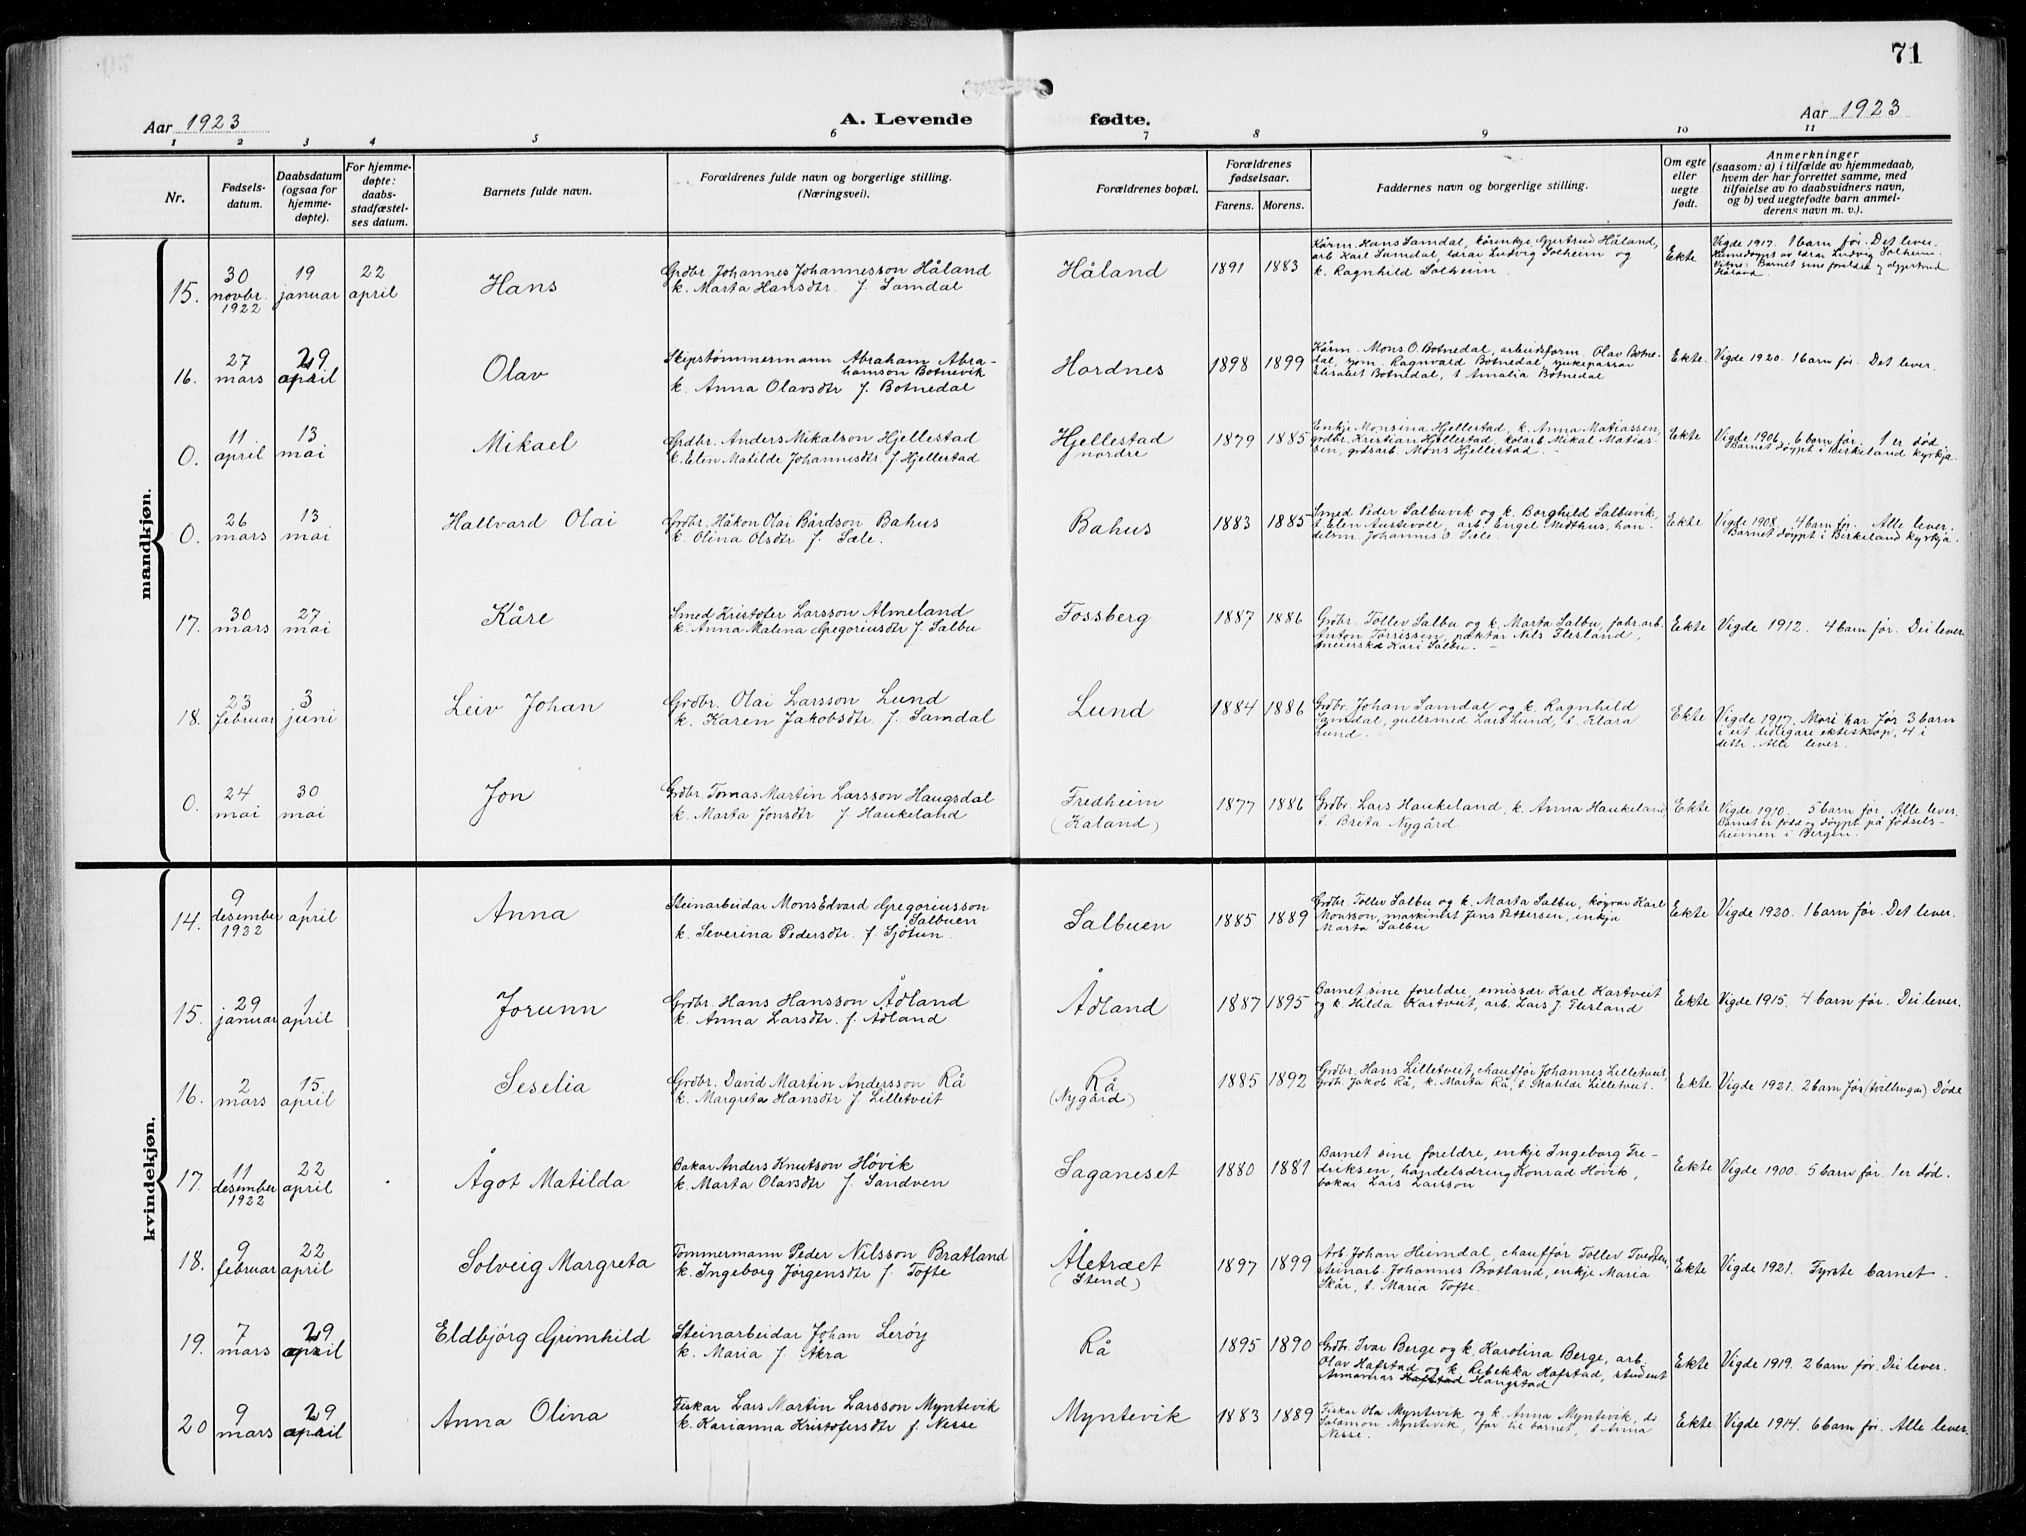 71
Aar 1923
A. Levende fødte.
Aar 1923
1 2 3 4 5 6 7 8 9 10 11
Nr.
Fødsels-
datum.
Daabsdatum
(ogsaa for
hjemme-
døpte).
For hjemme-
døpte:
daabs-
stadfæstel-
ses datum.
Barnets fulde navn.
Forældrenes fulde navn og borgerlige stilling.
(Næringsvei).
Forældrenes bopæl.
Forældrenes
fødselsaar.
Farens. Morens.
Faddernes navn og borgerlige stilling.
Om egte
eller
uegte
født.
Anmerkninger
(saasom: a) i tilfælde av hjemmedaab,
hvem der har forrettet samme, med
tilføielse av to daabsvidners navn,
og b) ved uegtefødte barn anmel-
derens navn m. v.).
mandkjøn.
15.
30
novbr.
1922
19
januar
22
april
Hans
Grdbr. Johannes Johannesson Håland
k. Marta Hansdtr. f. Samdal
Håland
1891 1883
Kårm. Hans Samdal, kårenkje Gjertrud Håland,
arb. Karl Samdal, lærar Ludvig Solheim og
k. Ragnhild Solheim.
Ekte
Vigde 1917. 1 barn før. Det lever.
Heimedøypt av lærar Ludvig Solheim.
Vitne: Barnet sine foreldre og Gjertrud
Håland
16.
27
mars
29
april
Olav
Skipstømmermann Abraham Abra-
hamson Botnevik
k. Anna Olavsdtr f. Botnedal
Hordnes
1898 1899
Kårm. Mons O. Botnedal, arbeidsform. Olav Botne-
dal, sjøm. Ragnvald Botnedal, sjukepassar
Elisabet Botnedal, t. Amalia Botnedal
Ekte
Vigde 1920. 1 barn før. Det lever.
0.
11
april
13
mai
Mikael
Grdbr. Anders Mikalson Hjellestad
k. Elen Matilde Johannesdtr. f. Hjellestad
Hjellestad
nordre
1879 1885
Enkje Monsina Hjellestad, k. Anna Matiassen,
grdbr. Kristian Hjellestad, kolarb. Mikal Matias-
sen, grdsarb. Mons Hjellestad.
Ekte
Vigde 1906. 6 barn før. 1 er død.
Barnet døypt i Birkeland kyrkja.
0.
26
mars
13
mai
Hallvard Olai
Grdbr. Håkon Olai Bårdson Bahus
k. Olina Olsdtr f. Sæle.
Bahus
1883 1885
Smed Peder Salbuvik og k. Borghild Salbuvik,
t. Elen Austevoll, arb. Engel Midthus, han-
delsm. Johannes O. Sæle.
Ekte
Vigde 1908. 4 barn før. Alle lever.
Barnet døypt i Birkeland kyrkja.
17.
30
mars
27
mai
Kåre
Smed Kristofer Larsson Almeland
k. Anna Malena Gregoriusdtr f. Salbu
Fossberg
1887 1886
Grdbr. Tollev Salbu og k. Marta Salbu, fabr. arb.
Anton Torrissen, paktar Nils Flesland,
meierska Kari Salbu.
Ekte
Vigde 1912. 4 barn før. Dei lever
18.
23
februar
3
juni
Leiv Johan
Grdbr. Olai Larsson Lund
k. Karen Jakobsdtr. f. Samdal
Lund
1884 1886
Grdbr. Johan Samdal og k. Ragnhild
Samdal, gullsmed Lars Lund, t. Klara
Lund.
Ekte
Vigde 1917. Mori har før 3 barn
i eit tidligare ekteskap, 4 i
dette. Alle lever.
0.
24
mai
30
mai
Jon
Grdbr. Tomas Martin Larsson Haugsdal
k. Marta Jonsdtr f. Haukeland
Fredheim
(Kaland)
1877 1886
Grdbr. Lars Haukeland, k. Anna Haukeland,
t. Breta Nygård
Ekte
Vigde 1910. 5 barn før. Alle lever.
Barnet er født og døypt på fødsels-
heimen i Bergen.
kvindekjøn.
14.
9
desember
1922
1
april
Anna
Steinarbeidar Mons Edvard Gregoriusson
Salbuen
k. Severina Pedersdtr. f. Sjøtun.
Salbuen
1885 1889
Grdbr. Tollev Salbu og k. Marta Salbu, Karl
Monsson, maskinert Jens Pettersen, enkja
Marta Salbu
Ekte
Vigde 1920. 1 barn før. Det lever.
15.
29
januar
1
april
Jorunn
Grdbr. Hans Hansson Ådland
k. Anna Larsdtr. f. Ådland
Ådland
1887 1895
Barnet sine foreldre, emissær Karl Kartveit
og k. Hilda Kartveit, arb. Lars J. Flesland
Ekte
Vigde 1915. 4 barn før. Dei lever.
16.
2
mars
15
april
Seselia
Grdbr. David Martin Andersson Rå
k. Margreta Hansdtr f. Lilletveit
Rå
(Nygård)
1885 1892
Grdbr. Hans Lilletveit, chauffør Johannes Lilletveit,
Grdb. Jakob Rå, k. Marta Rå, t. Matilde Lilletveit.
Ekte
Vigde 1921. 2 barn før (tvillingar) Døde
17.
11
desember
1922
22
april
Ågot Matilda
Bakar Anders Knutson Høvik
k. Marta Olavsdtr f. Sandven
Saganeset
1880 1881
Barnet sine foreldre, enkje Ingeborg Fre-
driksen, handelsdrng Konrad Høvik,
bakar Lars Larsson
Ekte
Vigde 1900. 5 barn før. 1 er død.
18.
9
februar
22
april
Solveig Margreta
Tømmermann Peder Nilsson Bratland
k. Ingeborg Jørgensdtr f. Tofte
Åletræet
(Stend)
1897 1899
Arb. Johan Heimdal, chauffør Tollev Tvedten,
steinarb. Johannes Bratland, enkje Maria
Skår, t. Maria Tofte.
Ekte
Vigde 1921. Fyrste barnet.
19.
7
mars
29
april
Eldbjørg Grimhild
Steinarbeidar Johan Lerøy
k. Maria f. Åkra
Rå
1895 1890
Grdbr. Ivar Berge og k. Karolina Berge, arb.
Olav Hafstad og k. Rebekka Hafstad, student
Hafstad Haugstad
Ekte
Vigde 1919. 2 barn før. Dei lever.
20
9
mars
29
april
Anna Olina
Fiskar Lars Martin Larsson Myntevik
k. Karianna Kristofersdtr f. Nesse
Myntevik
1883 1889
Fiskar Ola Myntevik og k. Anna Myntevik, do
Salamon Myntevik, far til barnet, t. Anna
Nesse.
Ekte
Vigde 1914. 6 barn før. Alle lever.